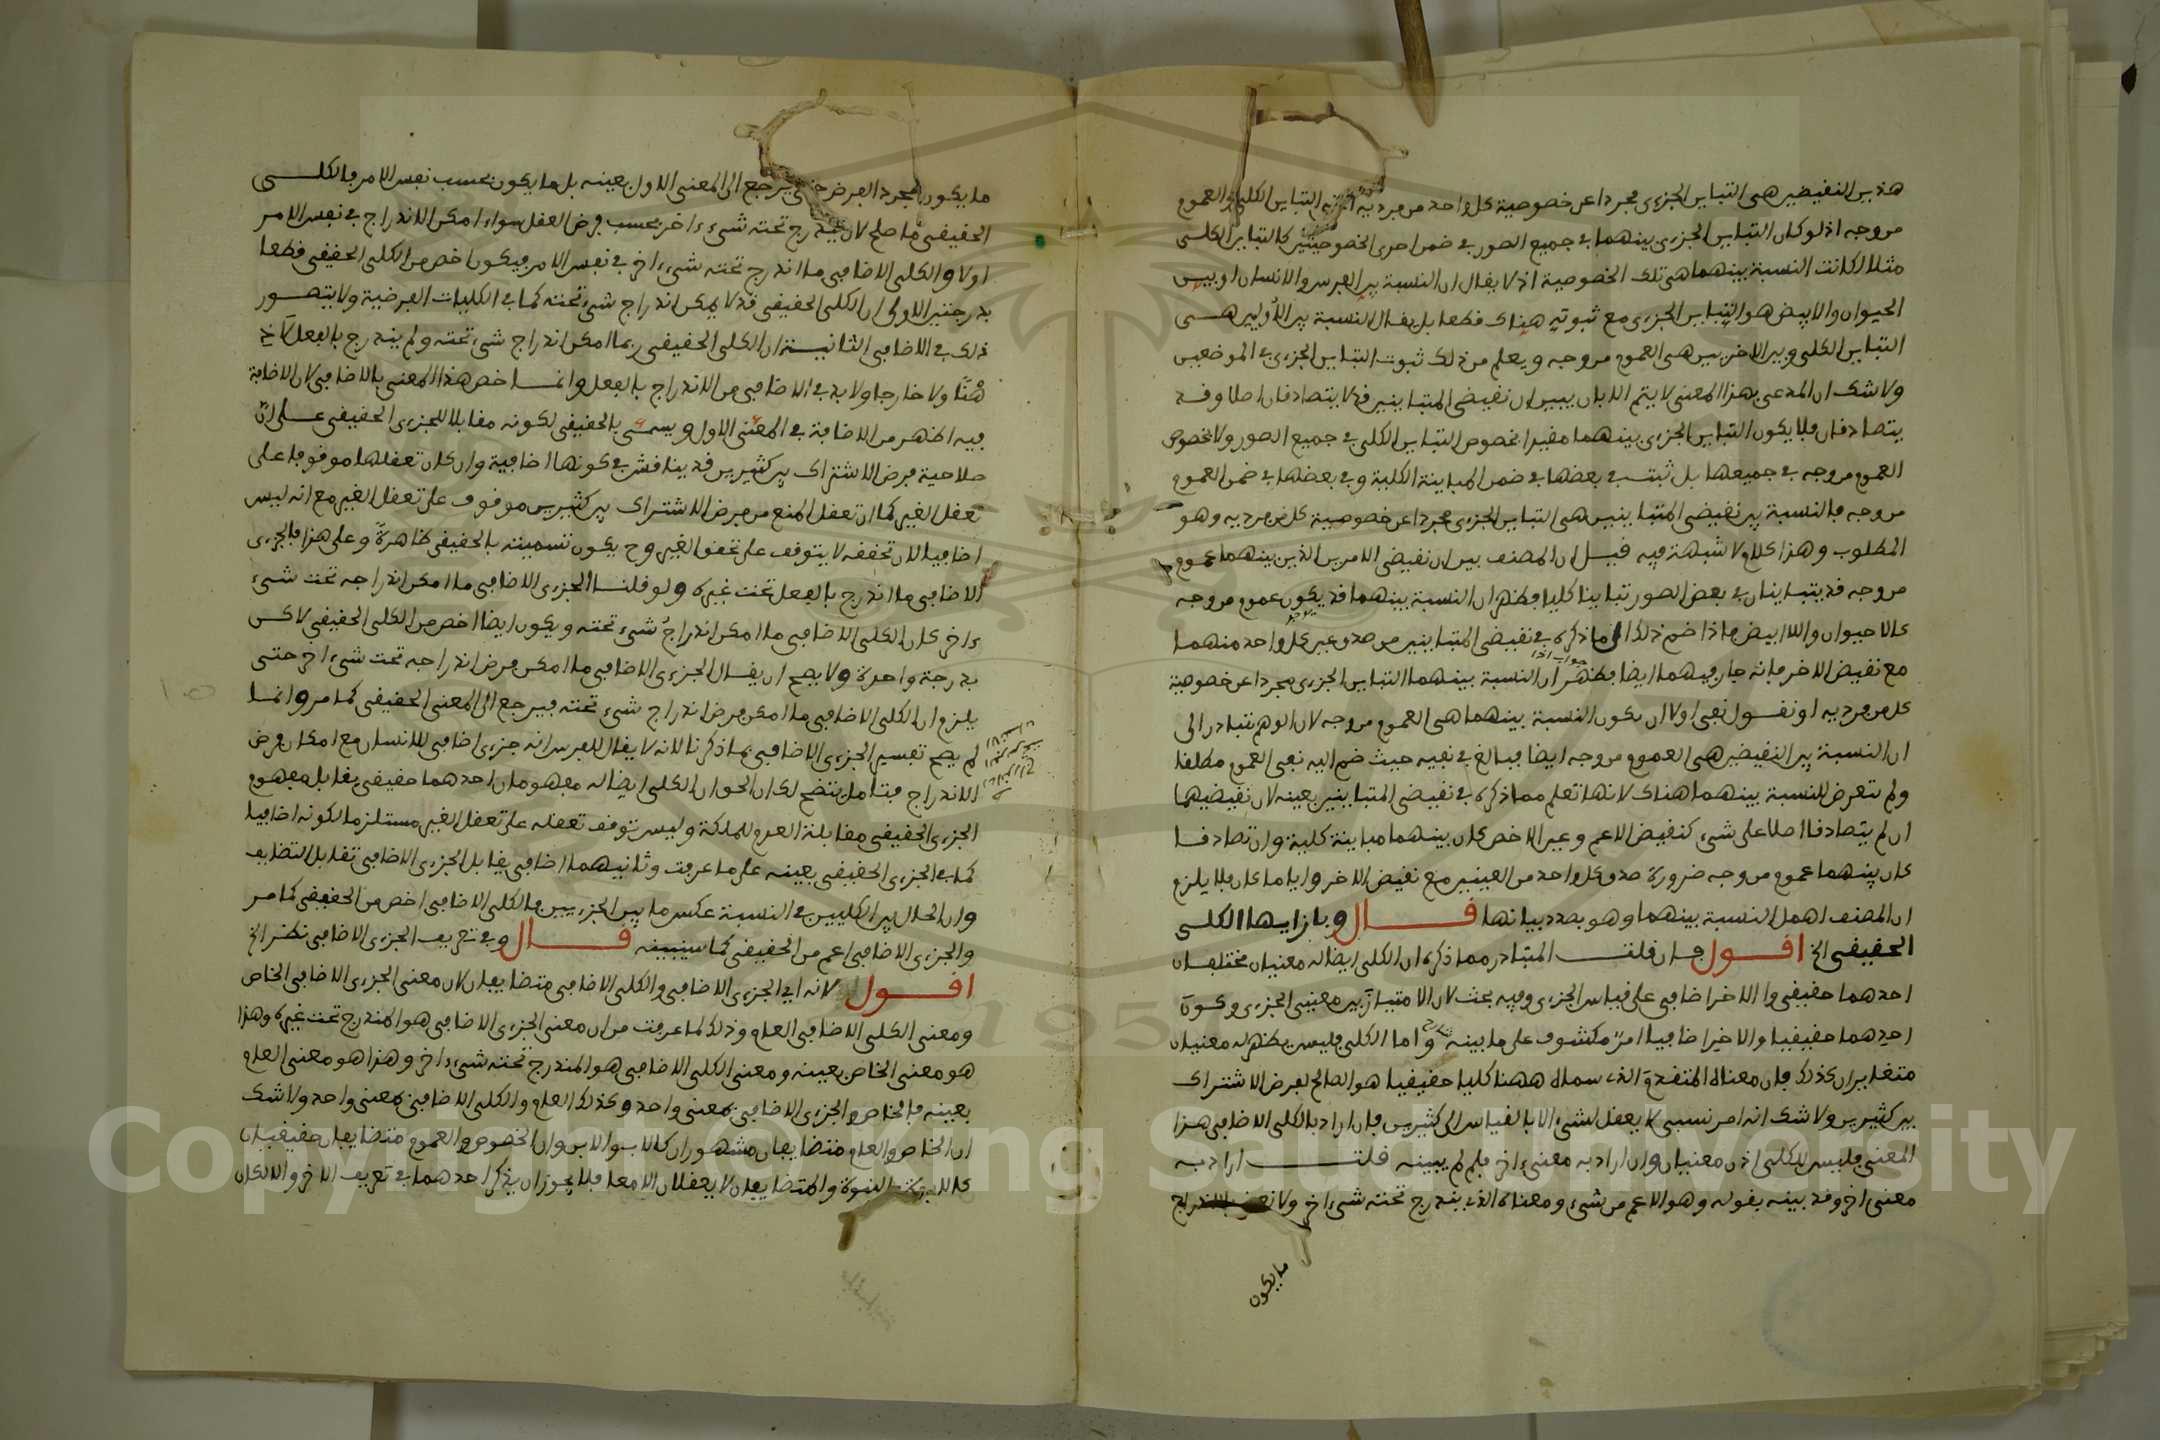 هذين النقيضين هي التباين الجزءي مجردا عن خصوصية كل واحد من فرديه اعني التباين الكلي والعموم
من وجه اذ لو كان التباين الجزءي بينهما في جميع الصور في ضمن احدى الخصوصيتين كالتباين الكلي
مثلا لكانت النسبة بينهما هي تلك الخصوصية اذ لا يقال ان النسبة بين الفرس والانسان او بين
الحيوان والابيض هو التباين الجزءي مع ثبوته هناك قطعا بل يقال النسبة بين الاولين هي
التباين الكلي وبين الاخريين هي العموم من وجه ويعلم من ذلك ثبوت التباين الجزءي في الموضعين
ولا شك ان المدعى بهذا المعنى لا يتم الا بان يبين ان نقيضي المتباينين قد لا يتصادقان اصلا وقد
يتصادقان فلا يكون التباين الجزءي بينهما مقيدا بخصوص التباين الكلي في جميع الصور ولا بخصوص
العموم من وجه في جميعها بل ثبت في بعضها في ضمن المباينة الكلية وفي بعضها في ضمن العموم
من وجه فالنسبة بين نقيضي المتباينين هي التباين الجزءي مجردا عن خصوصية كل من فرديه وهو
المطلوب وهذا كلام لا شبهة فيه قيل ان المصنف بين ان نقيضي الامرين الذين بينهما عموم
من وجه قد يتباينان في بعض الصور تباينا كليا فظهر ان النسبة بينهما قد يكون عموم من وجه
كالا حيوان واللا ابيض فاذا ضم ذلك الى ما ذكره في نقيضي المتباينين من صدق عين كل واحد منهما
مع نقيض الاخر فانه جار فيهما ايضا فظهر ان النسبة بينهما التباين الجزءي مجردا عن خصوصية
كل من فرديه او نقول نفى اولا ان يكون النسبة بينهما هي العموم من وجه لان الوهم يتبادر الى
ان النسبة بين النقيضين هي العموم من وجه ايضا فبالغ في نفيه حيث ضم اليه نفي العموم مطلقا
ولم يتعرض للنسبة بينهما هناك لانها تعلم مما ذكره في نقيضي المتباينين بعينه لان نقيضيهما
ان لم يتصادقا اصلا على شيء كنقيض الاعم وعين الاخص كان بينهما مباينة كلية وان تصادقا
كان بينهما عموم من وجه ضرورة صدق كل واحد من العينين مع نقيض الاخر واياما كان فلا يلزم
ان المصنف اهمل النسبة بينهما وهو بصدد بيانها قال وبازايها الكلي
الحقيقي الخ اقول فان قلت المتبادر مما ذكره ان الكلي ايضا له معنيان مختلفان
احدهما حقيقي والاخر اضافي على قياس الجزءي وفيه بحث لان الامتياز بين معنيي الجزءي وكون
احدهما حقيقيا والاخر اضافيا امر مكشوف على ما بينه واما الكلي فليس يظهر له معنيان
متغايران كذلك فان معناه المتقدم الذي سماه ههنا كليا حقيقيا هو الصالح لفرض الاشتراك
بين كثيرين ولا شك انه امر نسبي لا يعقل لشيء الا بالقياس الى كثيرين فان اراد بالكلي الاضافي هذا
المعنى فليس للكلي اذن معنيان وان اراد به معنى اخر فلم لم يبينه قلت اراد به
معنى اخر وقد بينه بقوله وهو الاعم من شيء ومعناه الذي يندرج تحته شيء اخر ولا نعني بالاندراج
ما يكون
ما يكون بمجرد الفرض حتى يرجع الى المعنى الاول بعينه بل ما يكون بحسب نفس الامر فالكلي
الحقيقي ما صلح لان يندرج تحته شيء ءاخر بحسب فرض العقل سواء امكن الاندراج في نفس الامر
او لا والكلي الاضافي ما اندرج تحته شيء اخر في نفس الامر فيكون اخص من الكلي الحقيقي قطعا
بدرجتين الاولى ان الكلي الحقيقي قد لا يمكن اندراج شيء تحته كما في الكليات الفرضية ولا يتصور
ذلك في الاضافي الثانية ان الكلي الحقيقي ربما امكن اندراج شيء تحته ولم يندرج بالفعل لا ذ
هنا ولا خارجا ولا بد في الاضافي من الاندراج بالفعل وانما خص هذا المعنى بالاضافي لان الاضافة
فيه اظهر من الاضافة في المعنى الاول ويسمى بالحقيقي لكونه مقابلا للجزءي الحقيقي على ان
صلاحية فرض الاشتراك بين كثيرين قد يناقش في كونها اضافية وان كان تعقلها موقوفا على
تعقل الغير كما ان تعقل المنع من فرض الاشتراك بين كثيرين موقوف على تعقل الغير مع انه ليس
اضافيا لان تحققه لا يتوقف على تحقق الغير وح يكون تسميته بالحقيقي ظاهرة وعلى هذا فالجزءي
الاضافي ما اندرج بالفعل تحت غيره ولو قلنا الجزءي الاضافي ما امكن اندراجه تحت شيء
ءاخر كان الكلي الاضافي ما امكن اندراج شيء تحته ويكون ايضا اخص من الكلي الحقيقي لاكن
بدرجة واحدة ولا يصح ان يقال الجزءي الاضافي ما امكن فرض اندراجه تحت شيء اخر حتى
يلزم ان الكلي الاضافي ما امكن فرض اندراج شيء تحته فيرجع الى المعنى الحقيقي كما مر وانما
لم يصح تفسير الجزءي الاضافي بما ذكرنا لانه لا يقال للفرس انه جزءي اضافي للانسان مع امكان فرض
الاندراج فتامل يتضح لك ان الحق ان الكلي ايضا له مفهومان احدهما حقيقي يقابل مفهوم
الجزءي الحقيقي مقابلة العدم للملكة وليس توقف تعقله على تعقل الغير مستلزما لكونه اضافيا
كما في الجزءي الحقيقي بعينه على ما عرفت وثانيهما اضافي يقابل الجزءي الاضافي تقابل التضايف
وان الحال بين الكليين في النسبة عكس ما بين الجزءيين فالكلي الاضافي اخص من الحقيقي كما مر
والجزءي الاضافي اعم من الحقيقي كما سيبينه قال وفي تعريف الجزءي الاضافي نظر الخ
اقول لانه اي الجزءي الاضافي والكلي الاضافي متضايفان لان معنى الجزءي الاضافي الخاص
ومعنى الكلي الاضافي العام وذلك لما عرفت من ان معنى الجزءي الاضافي هو المندرج تحت غيره وهذا
هو معنى الخاص بعينه ومعنى الكلي الاضافي هو المندرج تحته شيء ءاخر وهذا هو معنى العام
بعينه فالخاص والجزءي الاضافي بمعنى واحد وكذلك العام والكلي الاضافي بمعنى واحد ولا شك
ان الخاص والعام متضايفان مشهوران كالاب والابن وان الخصوص والعموم متضايفان حقيقيان
كالابوة والبنوة والمتضايفان لا يعقلان الا معا فلا يجوز ان يذكر احدهما في تعريف الاخر والا لكان
Copyright © King Saud University
1957